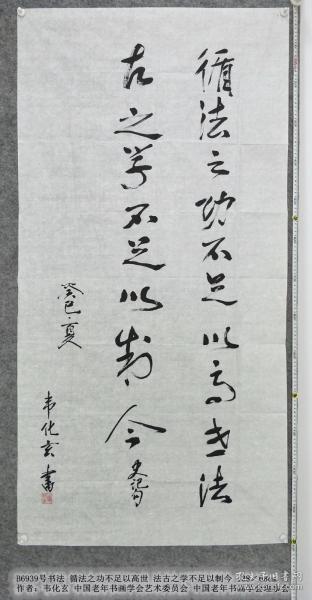 循法之功不足以高世法
古之学不足以制今 史记句
癸巳·夏
韦化玄书
B6939号书法 循法之功不足以高世 法古之学不足以制今
作者: 韦化玄 中国老年书画学会艺术委员会 中国老年书画学会理事会